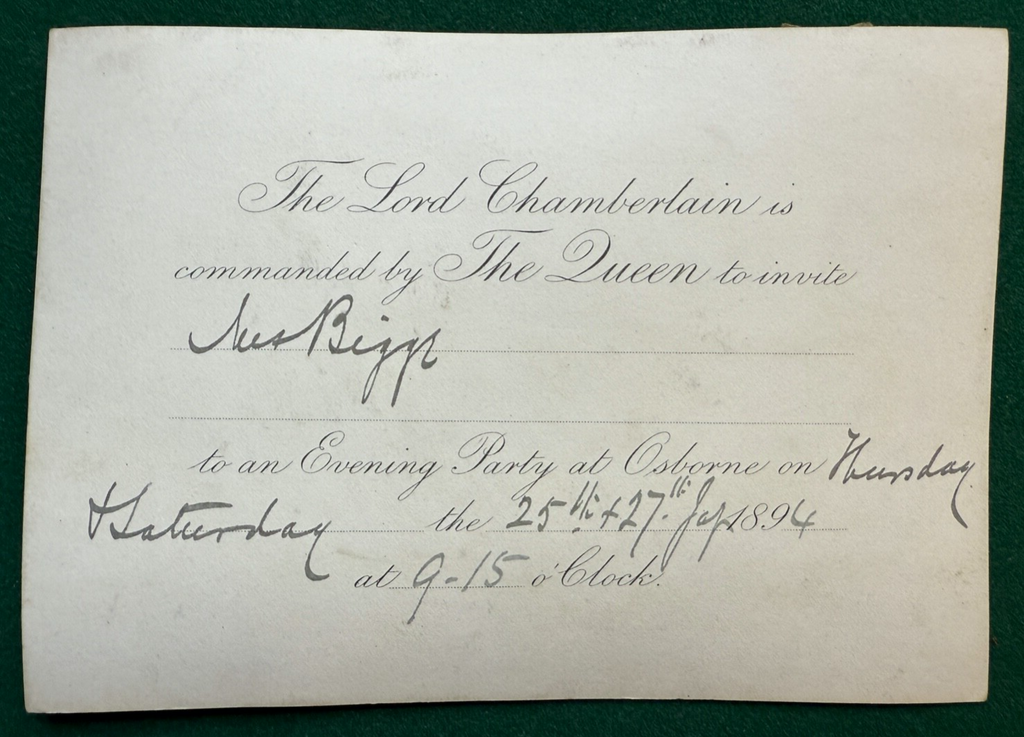 The Lord Chamberlain is
commanded by The Queen to invite
Mrs Bigge
to an Evening Party at Osborne on Thursday
+ Saturday the 25th + 27th Jany 1894
at 9-15 o'Clock.